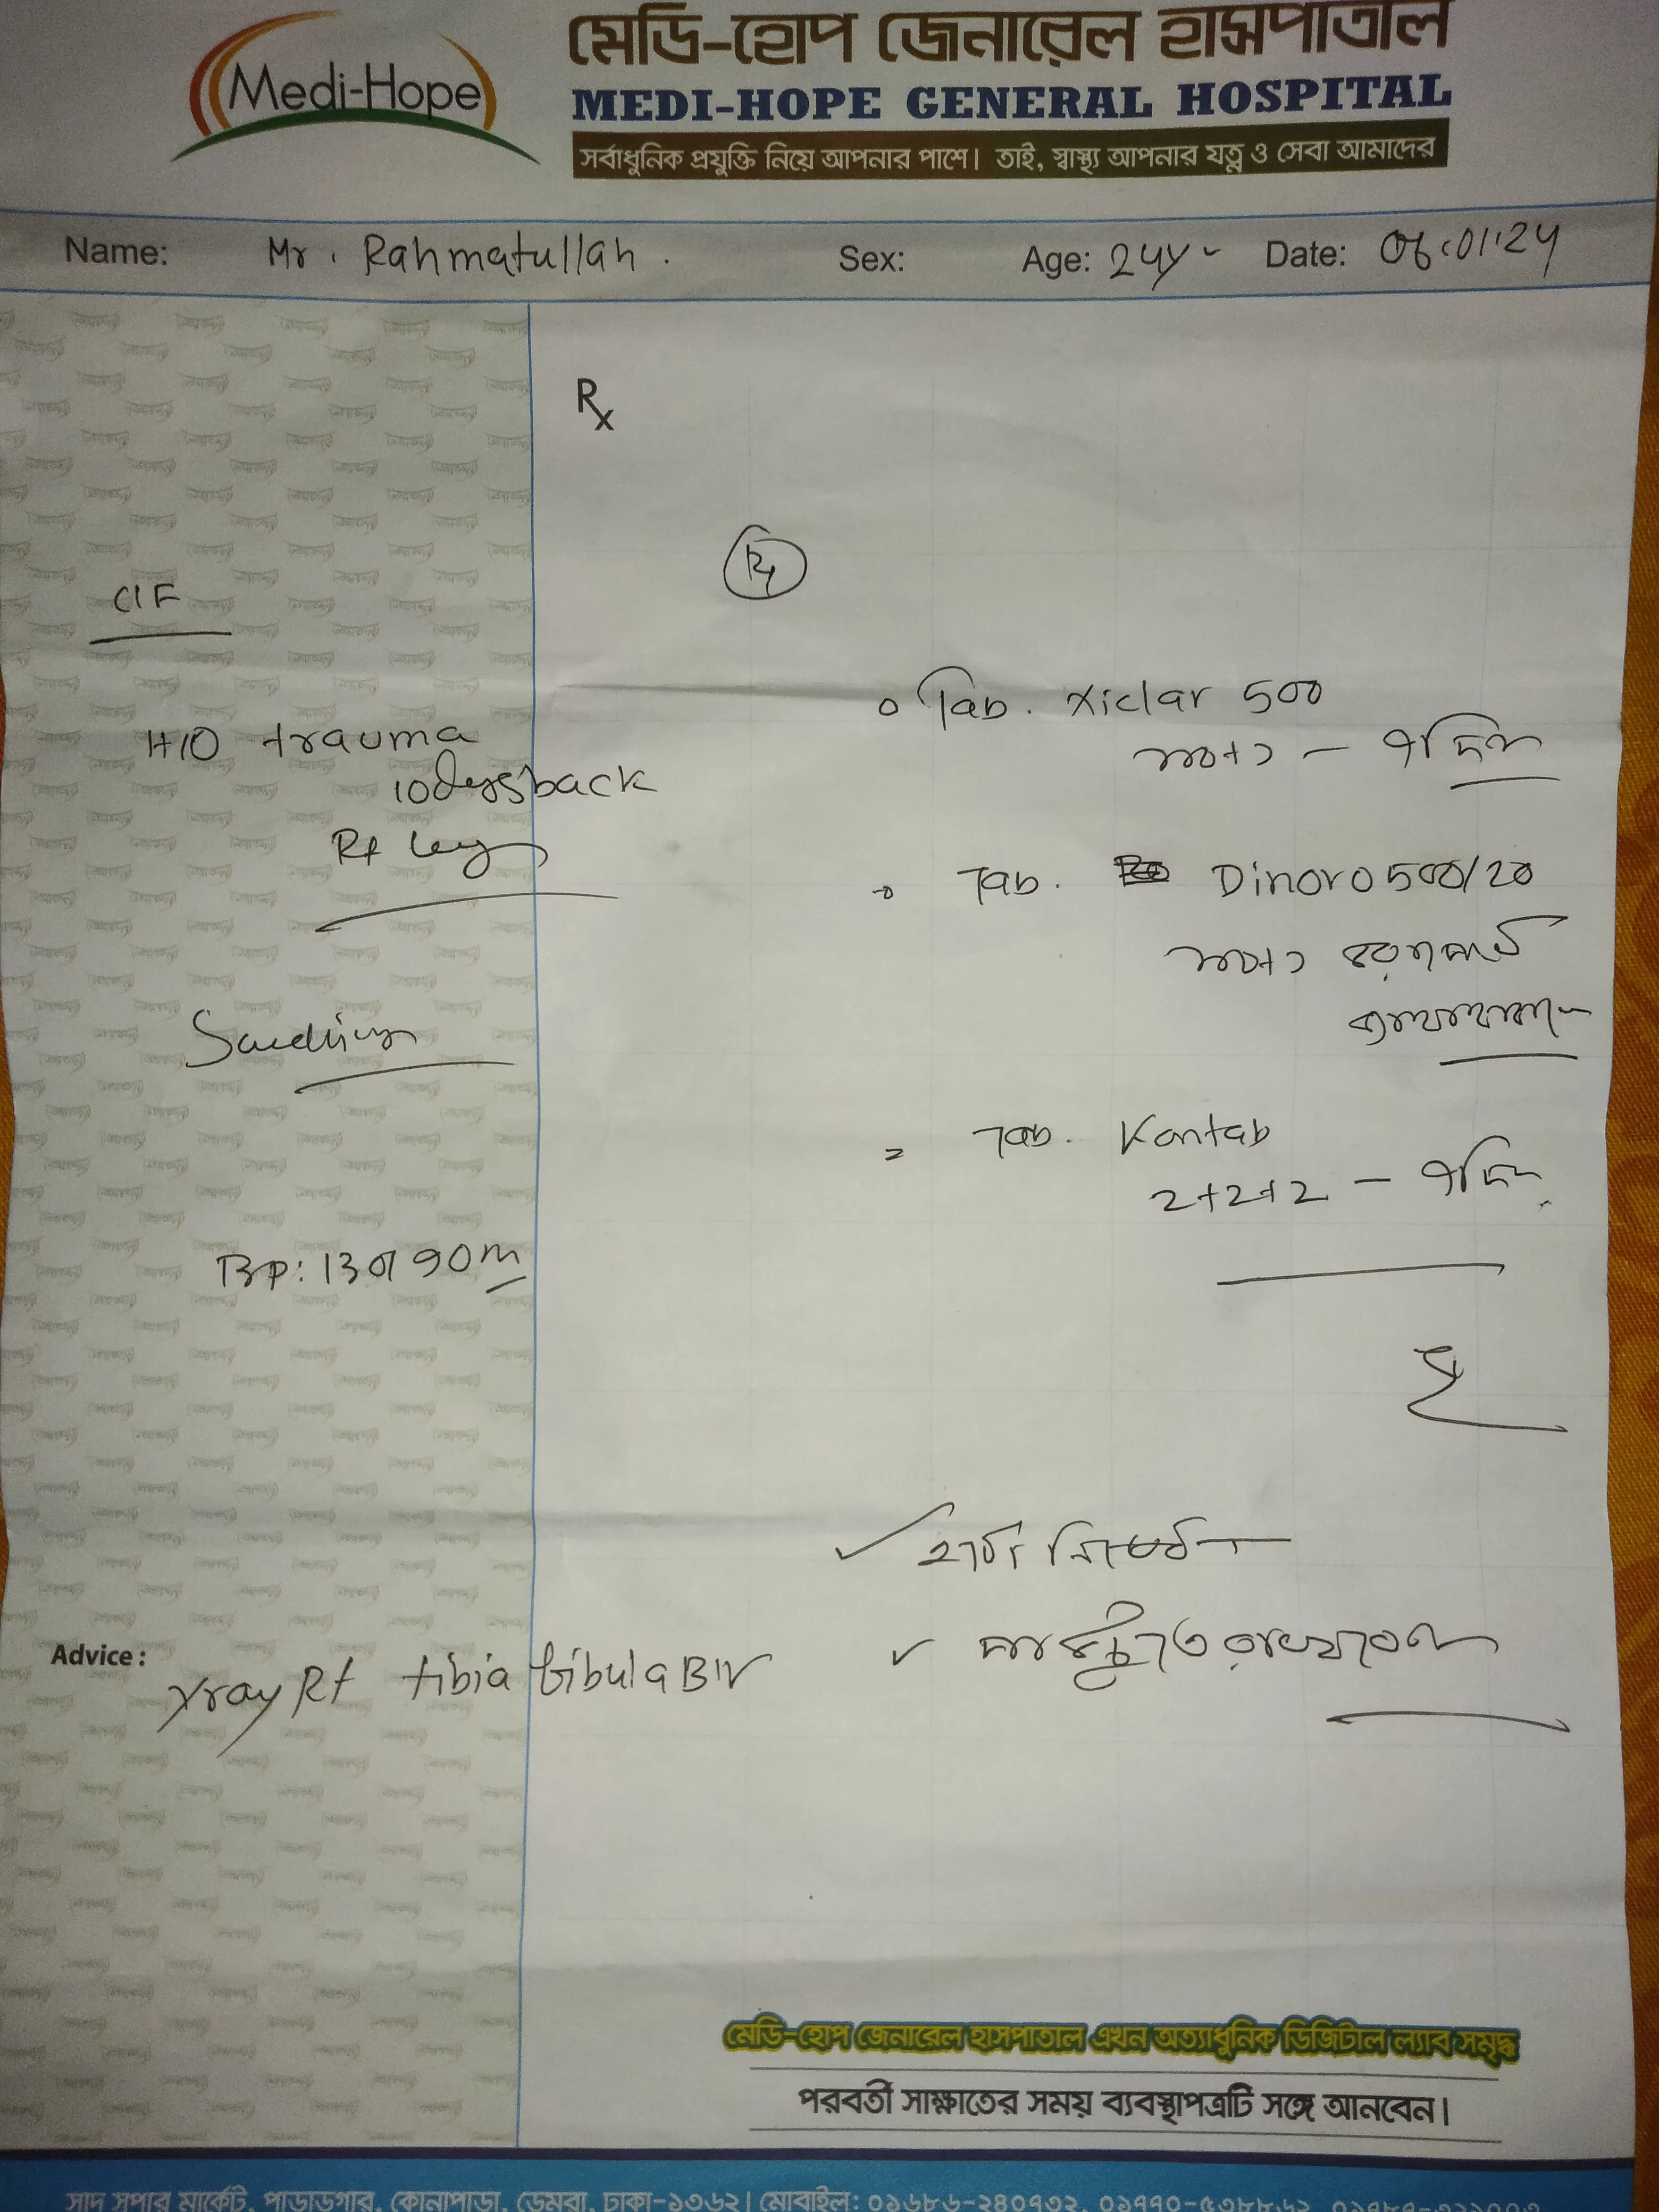 Medi-Hope
মেডি-হোপ জেনারেল হাসপাতাল
MEDI-HOPE GENERAL HOSPITAL
সর্বাধুনিক প্রযুক্তি নিয়ে আপনার পাশে। তাই, স্বাস্থ্য আপনার যত্ন ও সেবা আমাদের
Name: Mr. Rahmatullah. Sex: Age: 24y Date: 06.01.24
Rx
H/O trauma
10 days back
Rt leg
BP: 130/90 m
Tab. Xiclar 500
১+০+১ – ৭ দিন
Tab. Dinoro 500/20
১+০+১
Tab. Kontab
2+2+2 – ৭ দিন
হাটা নিষেধ
পা উঁচুতে রাখবেন
Advice:
Xray Rt tibia fibula B/V
মেডি-হোপ জেনারেল হাসপাতাল এখন অত্যাধুনিক ডিজিটাল ল্যাব সমৃদ্ধ
পরবর্তী সাক্ষাতের সময় ব্যবস্থাপত্রটি সঙ্গে আনবেন।
সাদ সুপার মার্কেট, পাড়াডগার, কোনাপাড়া, ডেমরা, ঢাকা-১৩৬২। মোবাইল: